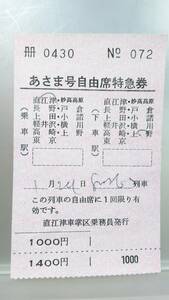 冊 0430 No 072
あさま号自由席特急券
(乗車駅)
直江津・妙高高原
長野・戸倉
上田・小諸
軽井沢・横川
高崎・上野
東京
(下車駅)
直江津・妙高高原
長野・戸倉
上田・小諸
軽井沢・横川
高崎・上野
東京
月 日 列車
この列車の自由席に1回限り有
効です。
直江津車掌区乗務員発行
1000円
1400円 1000